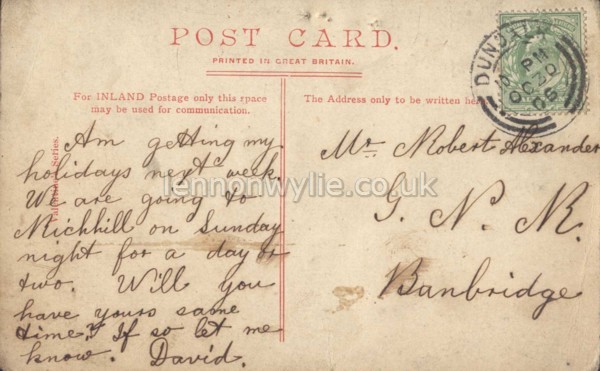 POST CARD.
PRINTED IN GREAT BRITAIN.
For INLAND Postage only this space
may be used for communication.
The Address only to be written here
Series.
Am getting my
holidays next week.
We are going to
Michhill on Sunday
night for a day or
two. Will you
have yours same
time? If so let me
know. David.
Mr. Robert Alexander
G. N. R.
Banbridge
DUNDALK
PM
OC 20
06
lennonwylie.co.uk